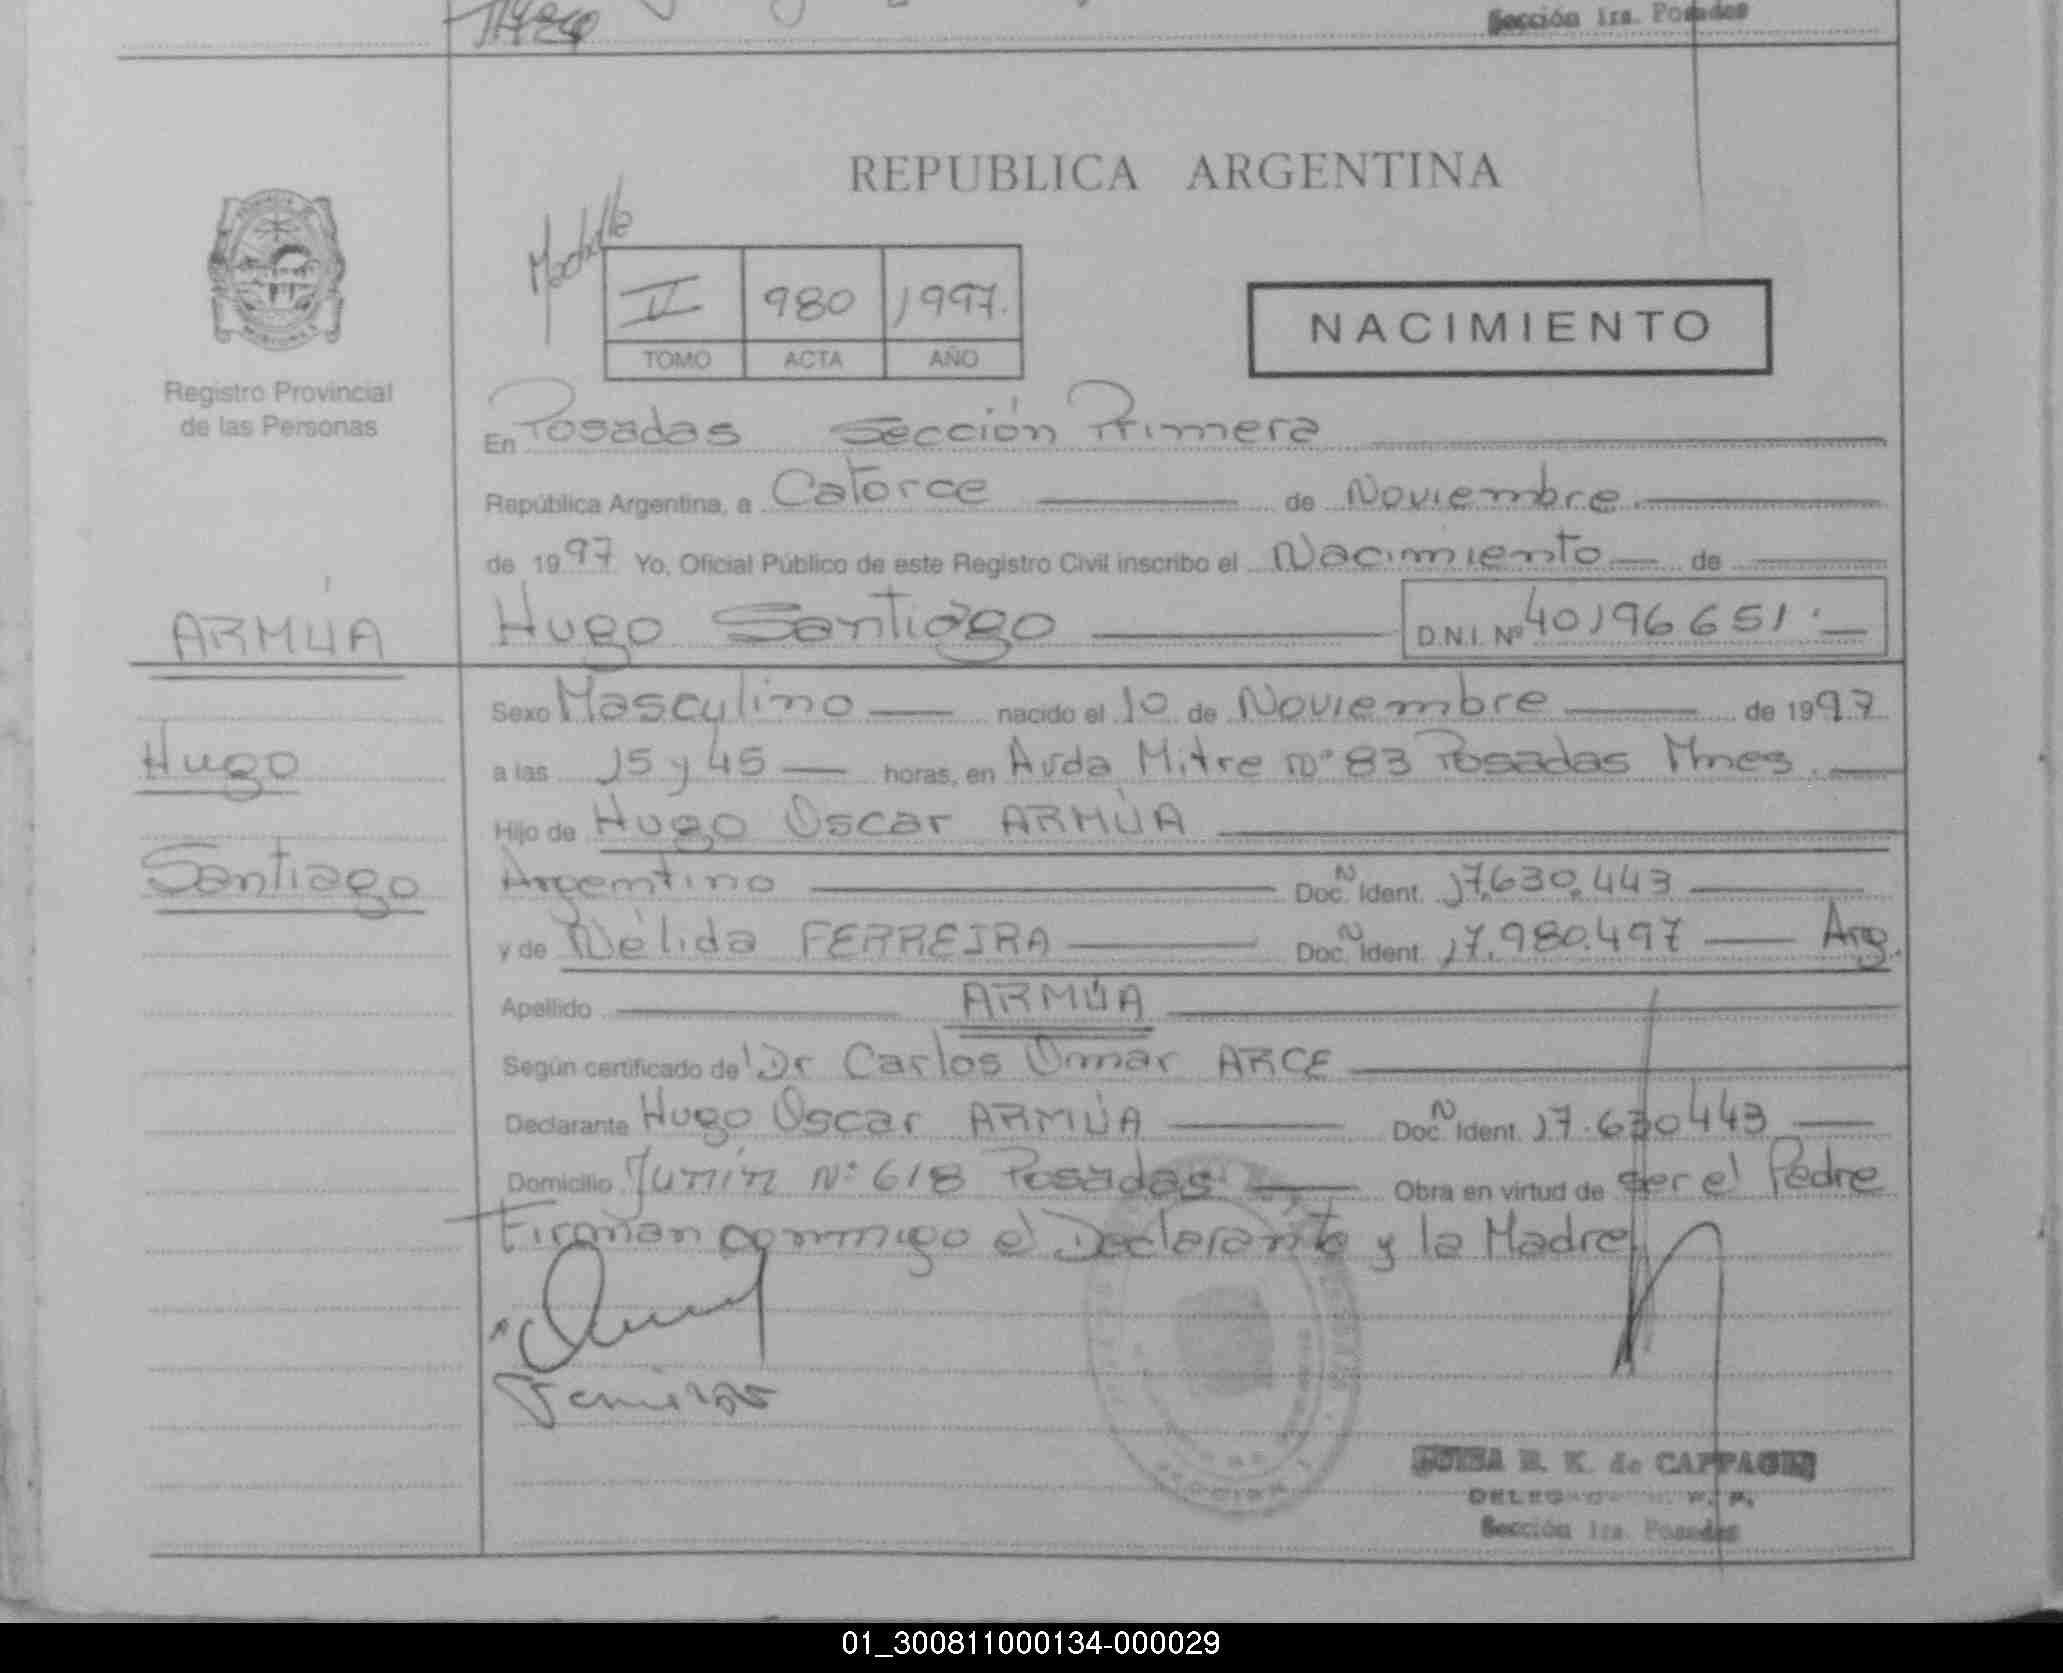 Sección 1ra. Posadas
REPUBLICA ARGENTINA
II 980 1997.
TOMO ACTA AÑO
NACIMIENTO
Registro Provincial
de las Personas
En Posadas Sección Primera
República Argentina, a Catorce de Noviembre
de 1997 Yo, Oficial Público de este Registro Civil inscribo el Nacimiento de
ARMÚA
Hugo Santiago D.N.I. Nº 40196651.
Sexo Masculino nacido el 10 de Noviembre de 1997
Hugo
a las 15 y 45 horas, en Avda Mitre Nº 83 Posadas Mnes.
Hijo de Hugo Oscar ARMÚA
Santiago
Argentino Doc. N Ident. 17.630.443
y de Nélida FERREIRA Doc. N Ident. 17.980.497 Arg.
Apellido ARMÚA
Según certificado de Dr Carlos Omar ARCE
Declarante Hugo Oscar ARMÚA Doc. N Ident. 17.630443
Domicilio Junín Nº 618 Posadas Obra en virtud de ser el Padre
Firman conmigo el Declarante y la Madre
B. K. de
Sección 1ra. Posadas
01_300811000134-000029